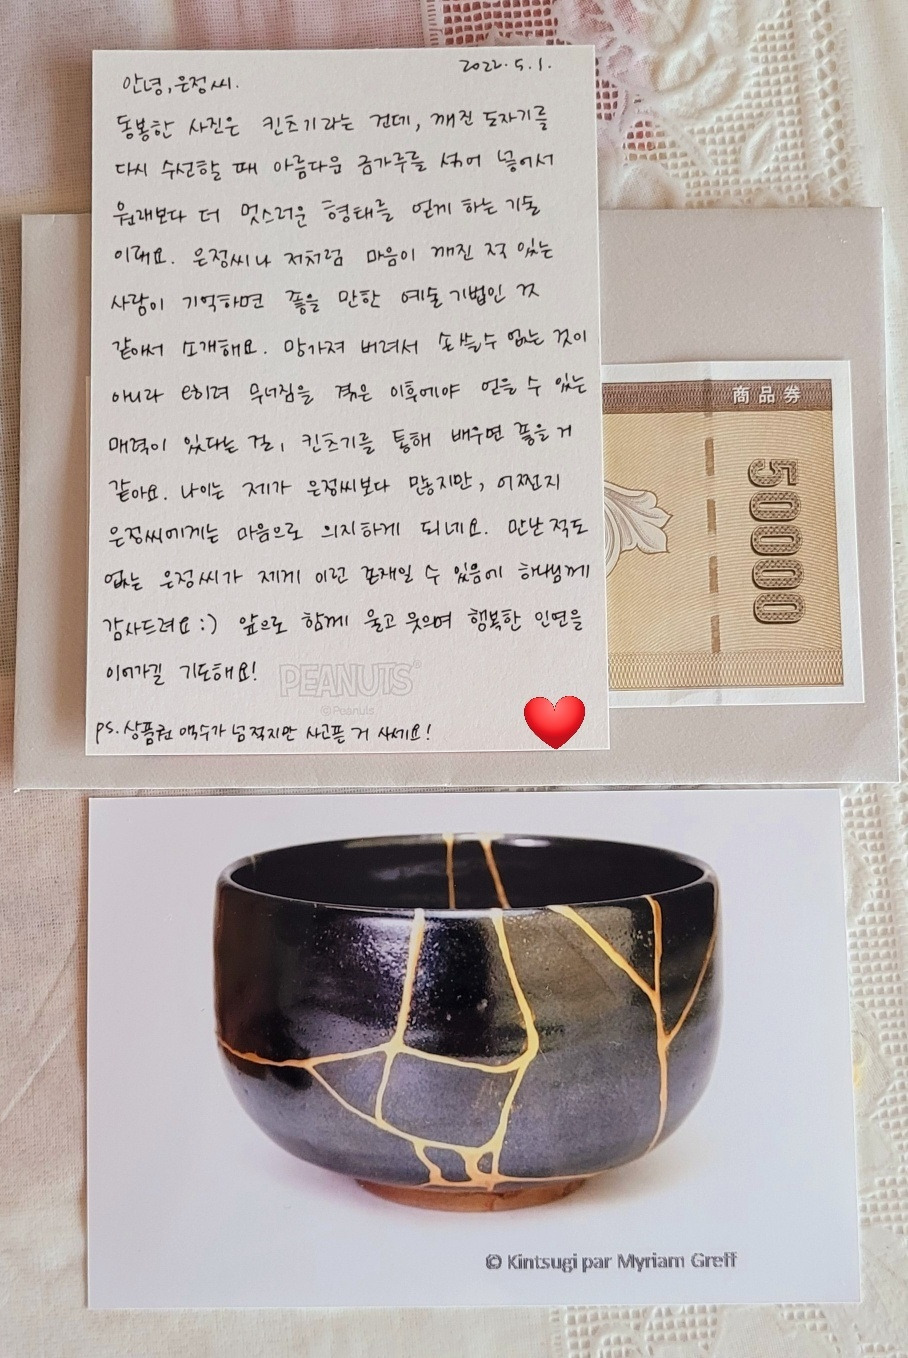 2022. 5. 1.
안녕, 은정씨.
동봉한 사진은 킨츠기라는 건데, 깨진 도자기를
다시 수선할 때 아름다운 금가루를 섞어 넣어서
원래보다 더 멋스러운 형태를 얻게 하는 기술
이래요. 은정씨나 저처럼 마음이 깨진 적 있는
사람이 기억하면 좋을 만한 예술 기법인 것
같아서 소개해요. 망가져 버려서 손 쓸 수 없는 것이
아니라 오히려 무너짐을 겪은 이후에야 얻을 수 있는
매력이 있다는 걸, 킨츠기를 통해 배우면 좋을 거
같아요. 나이는 제가 은정씨보다 많지만, 어쩐지
은정씨에게는 마음으로 의지하게 되네요. 만난 적도
없는 은정씨가 제게 이런 존재일 수 있음에 하나님께
감사드려요 :) 앞으로 함께 울고 웃으며 행복한 인연을
이어가길 기도해요!
PEANUTS®
© Peanuts
ps. 상품권 액수가 넘 적지만 사고픈 거 사세요!
商品券
50000
© Kintsugi par Myriam Greff